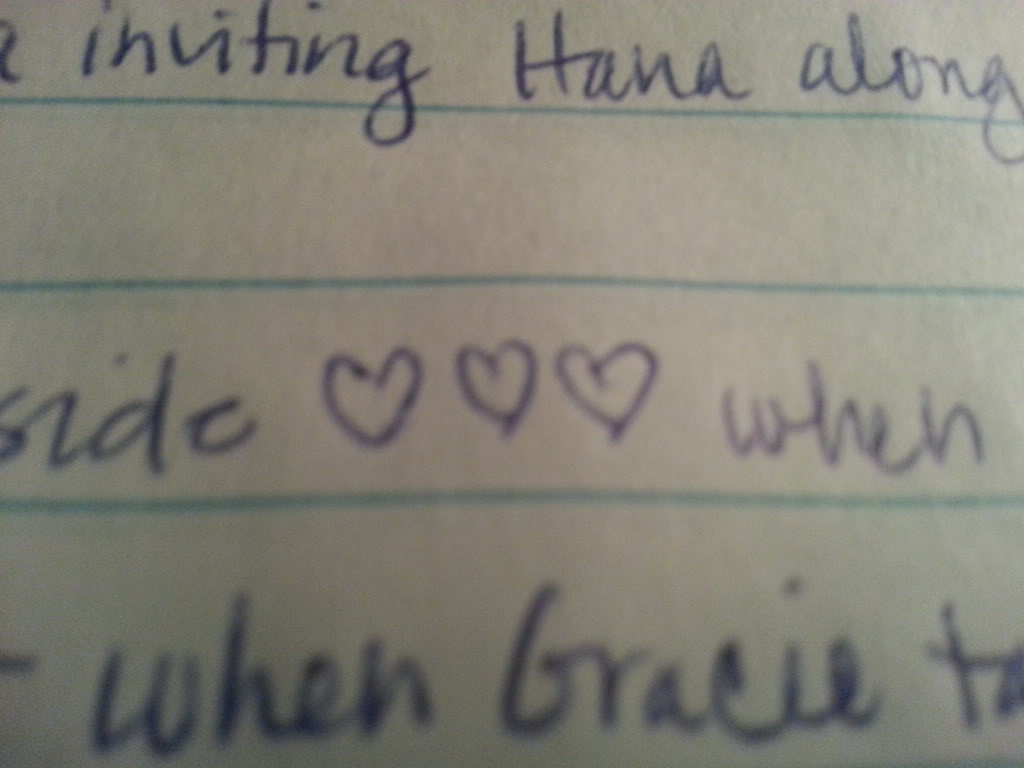 inviting Hana along
side ♡♡♡ when
- when Gracie